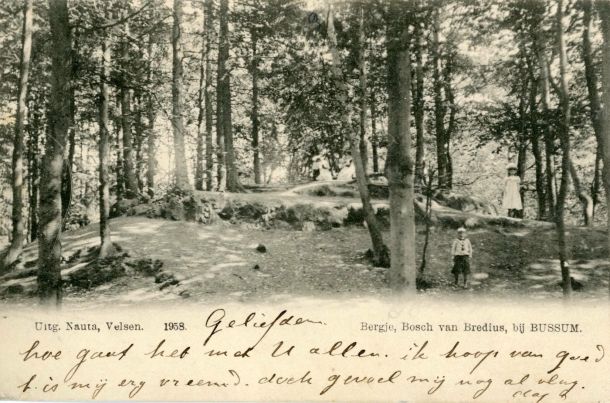 Uitg. Nauta, Velsen. 1958. Geliefden Bergje, Bosch van Bredius, bij BUSSUM.
hoe gaat het met U allen. ik hoop van goed
t. is mij erg vreemd. doch gevoel mij nog al
dag